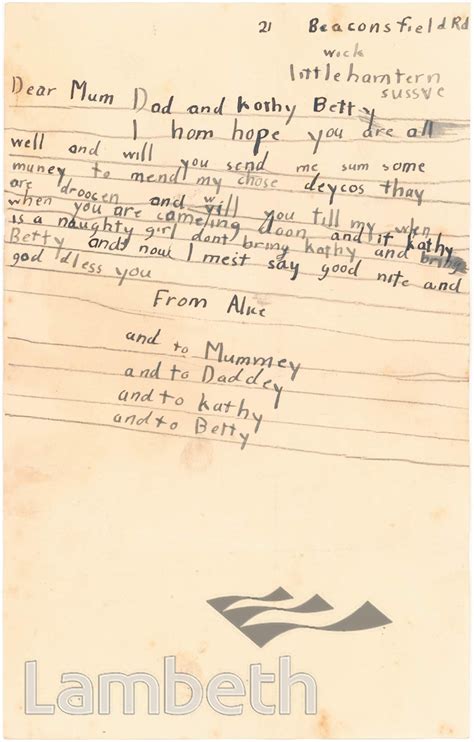 21 Beaconsfield Rd
wick
littlehamtern
sussve
Dear Mum Dad and Kathy Betty
I hom hope you are all
well and will you send me sum some
muney to mend my chose deycos thay
are droocen and will you till my when
when you are comeling doon and if kathy
is a naughty girl dont bring kathy and bring
Betty and now I meist say good nite and
god dless you
From Alice
and to Mummey
and to Daddey
and to kathy
and to Betty
Lambeth